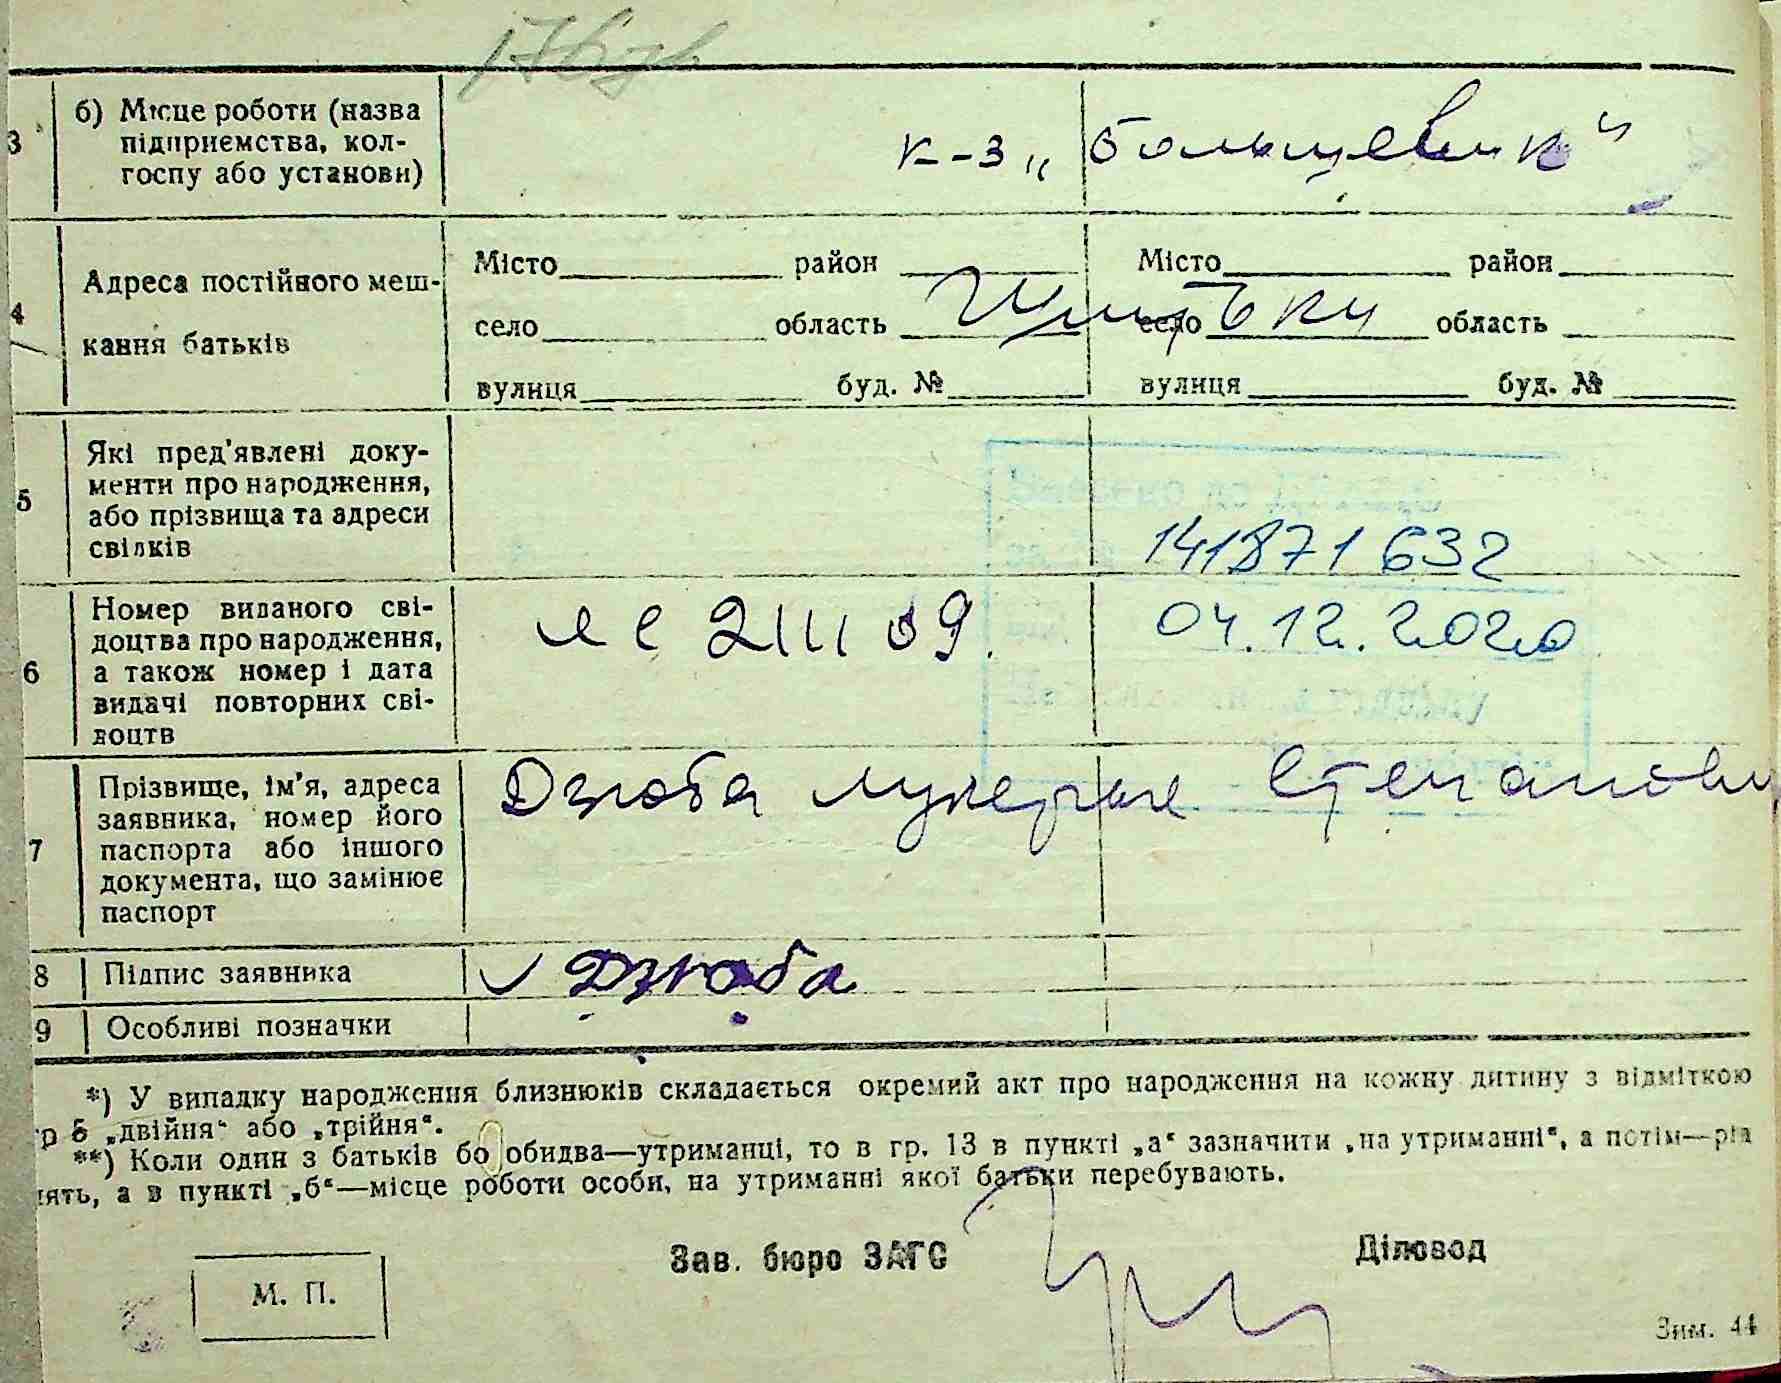 3 б) Місце роботи (назва
підприємства, кол-
госпу або установи)
к-з „Большевик“
4 Адреса постійного меш-
кання батьків
Місто район Місто район
село область село область
вулиця буд. № вулиця буд. №
5 Які пред'явлені доку-
менти про народження,
або прізвища та адреси
свідків
141871632
6 Номер виданого сві-
доцтва про народження,
а також номер і дата
видачі повторних сві-
доцтв
04.12.2020
7 Прізвище, ім'я, адреса
заявника, номер його
паспорта або іншого
документа, що замінює
паспорт
Дзюба Степанов
8 Підпис заявника Дзюба
9 Особливі позначки
*) У випадку народження близнюків складається окремий акт про народження на кожну дитину з відміткою
гр 5 „двійня“ або „трійня“.
**) Коли один з батьків бо обидва—утриманці, то в гр. 13 в пункті „а“ зазначити „на утриманні“, а потім—рід
нять, а в пункті „б“—місце роботи особи, на утриманні якої батьки перебувають.
Зав. бюро ЗАГС Діловод
М. П.
Зам. 44